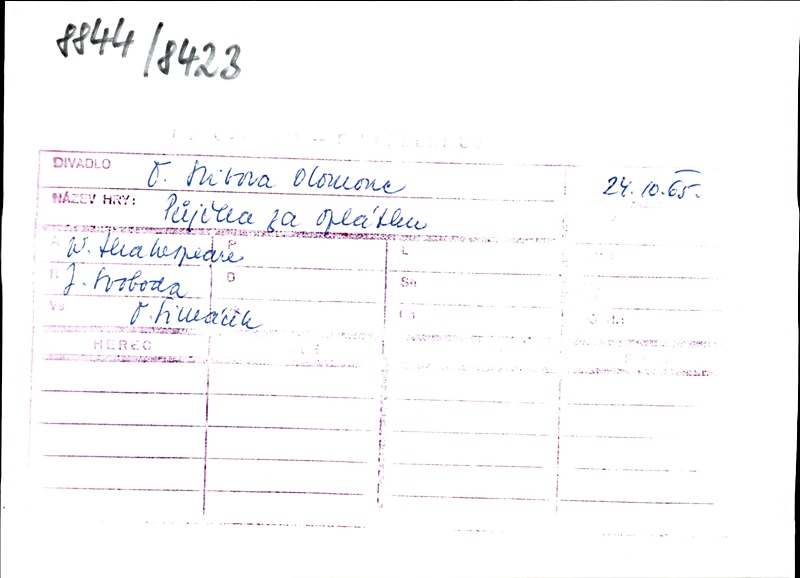 8844/8423
DIVADLO O. Stibora Olomouc 24.10.65.
NÁZEV HRY: Půjčka za oplátku
W. Shakespeare P L
J. Svoboda D
O. Šimáček
HEREC